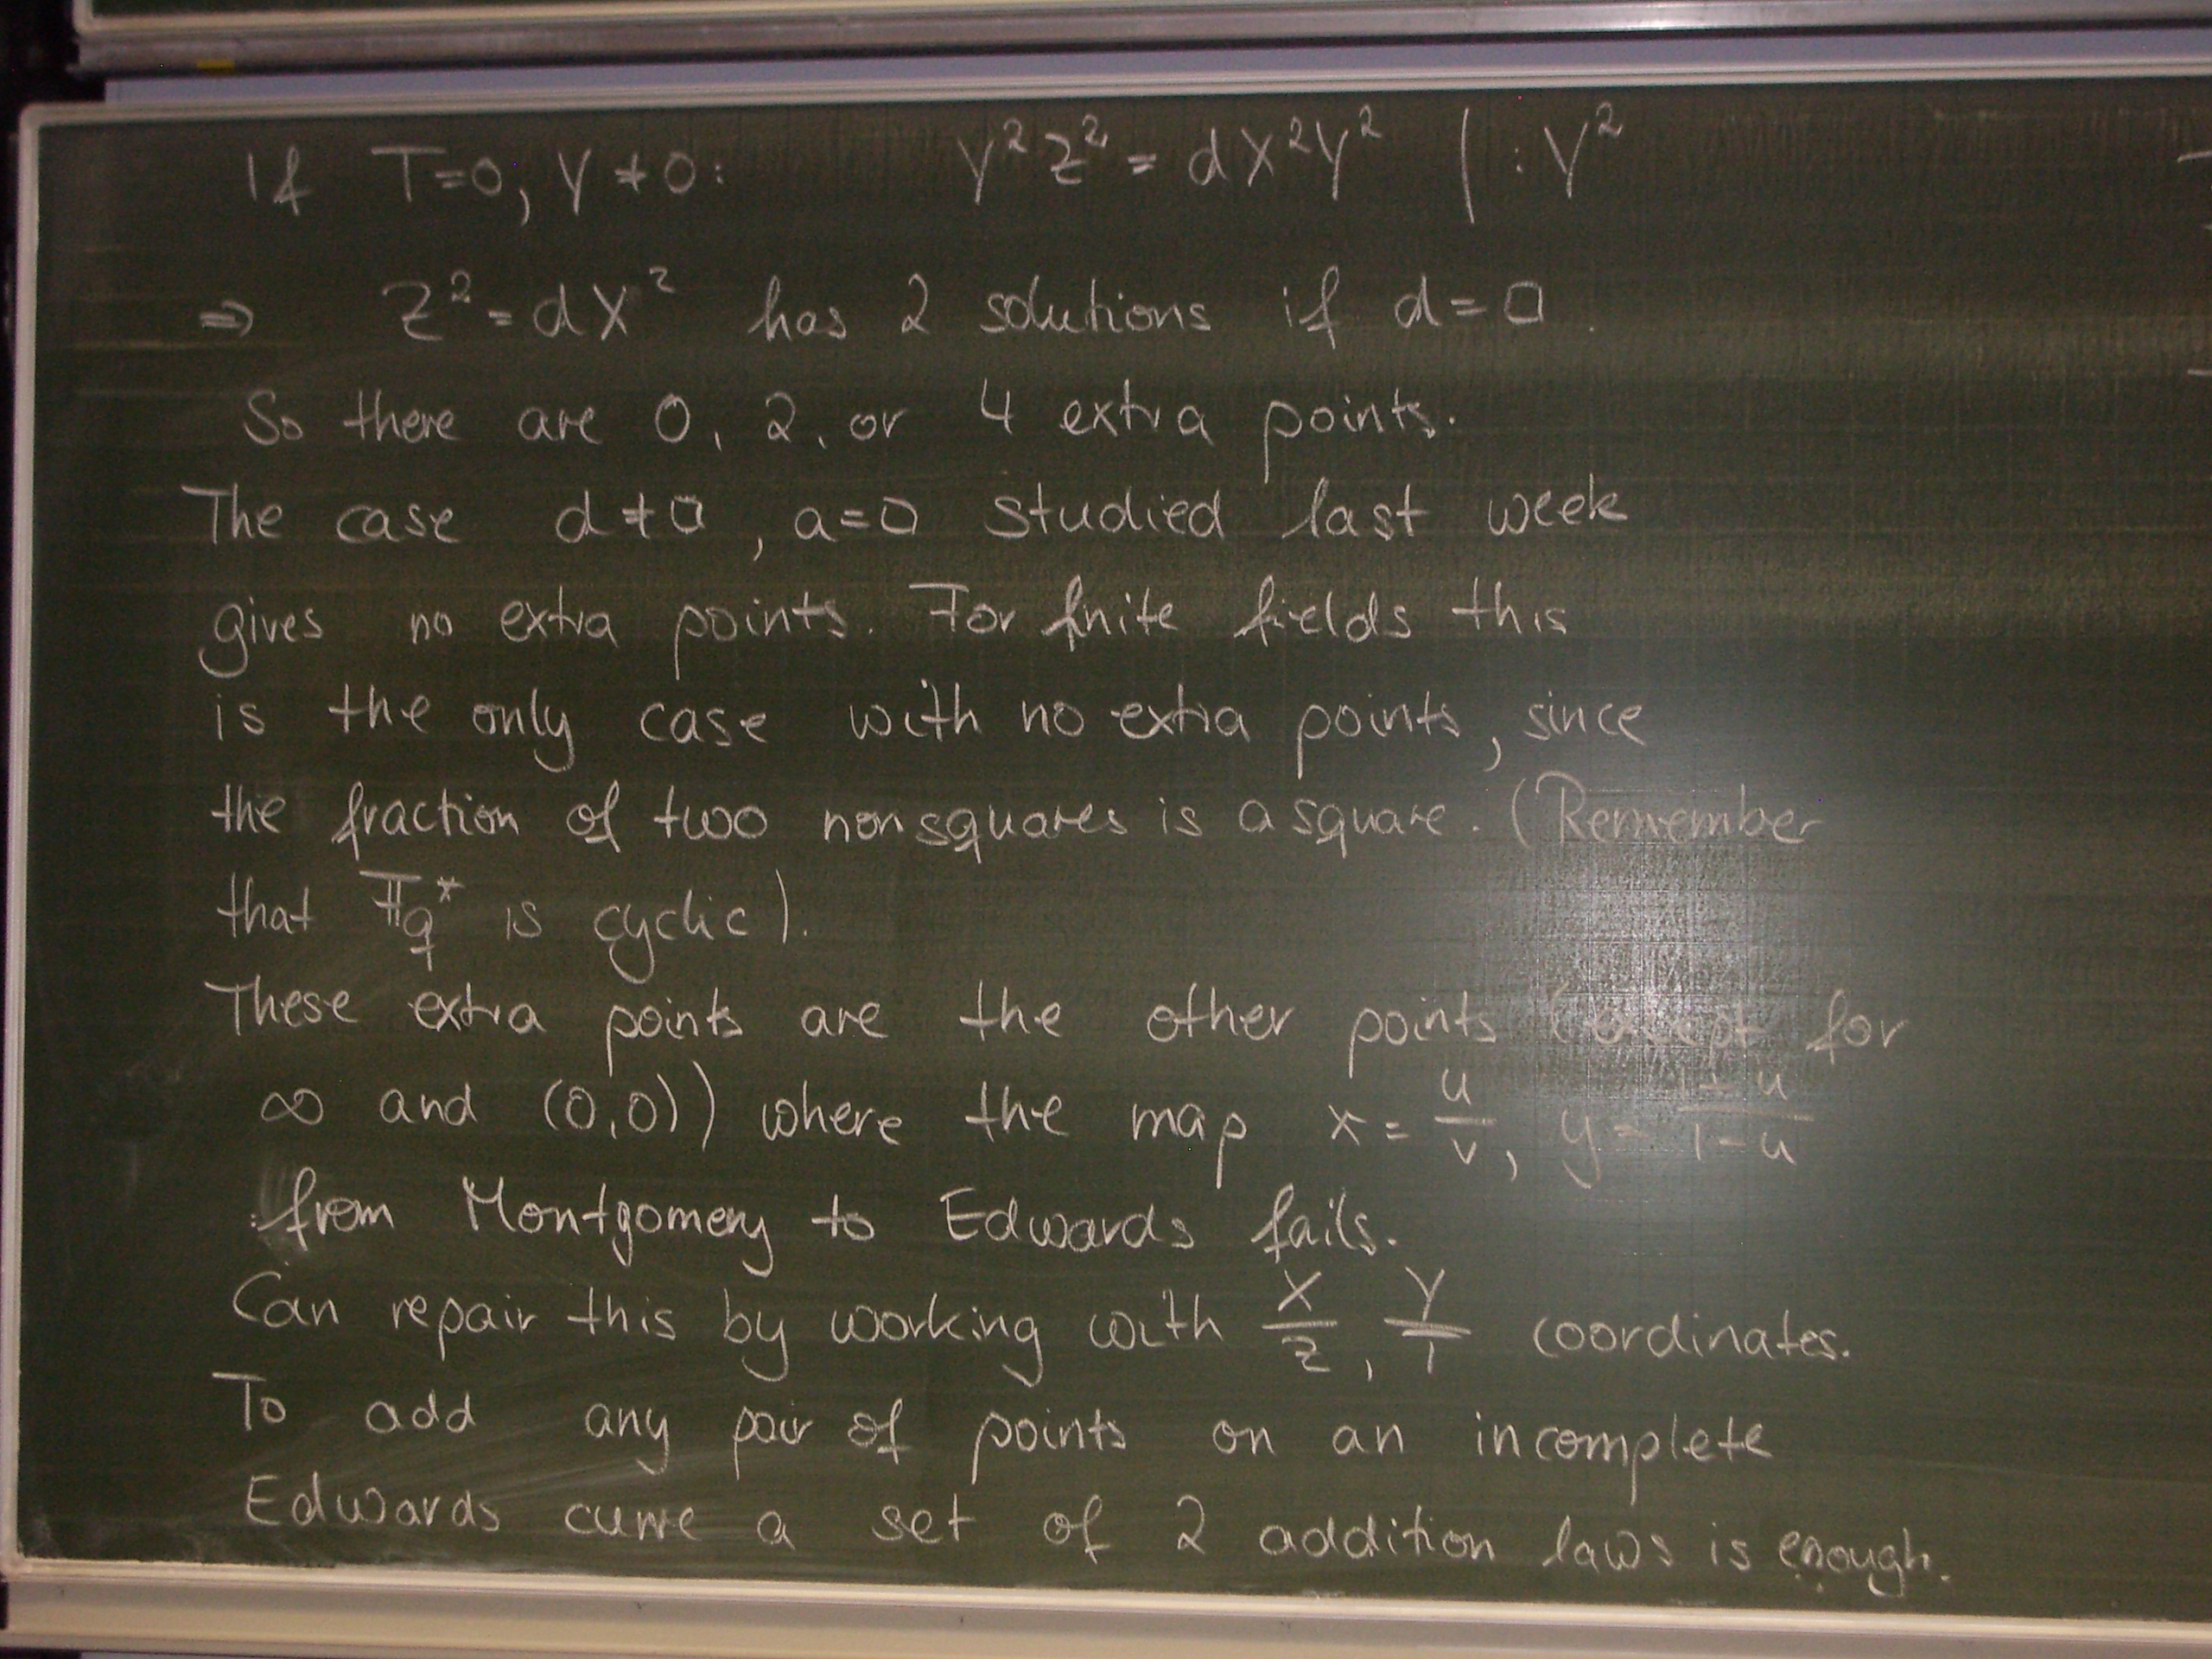 If T=0, Y≠0: Y²Z² = dX²Y² | :Y²
⇒ Z² = dX² has 2 solutions if d=□.
So there are 0, 2, or 4 extra points.
The case d≠□, a=□ studied last week
gives no extra points. For finite fields this
is the only case with no extra points, since
the fraction of two nonsquares is a square. (Remember
that 𝔽q* is cyclic).
These extra points are the other points (except for
∞ and (0,0)) where the map x = u/v, y =
from Montgomery to Edwards fails.
Can repair this by working with X/Z, Y/T coordinates.
To add any pair of points on an incomplete
Edwards curve a set of 2 addition laws is enough.